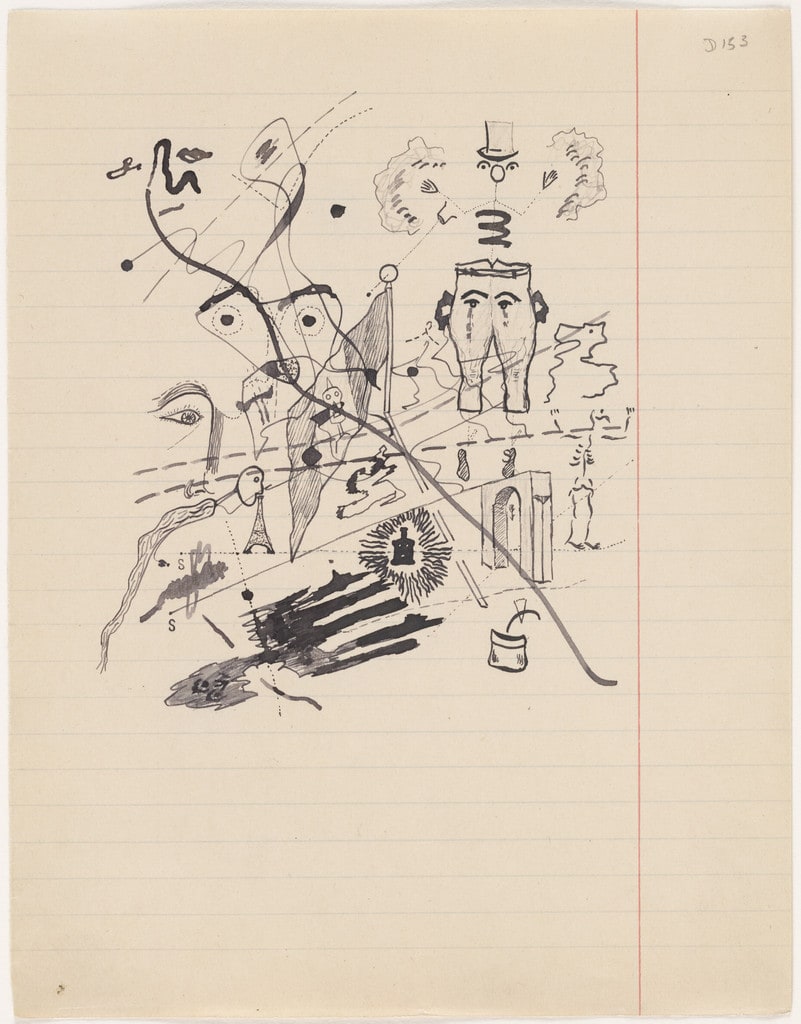 D153
S
S